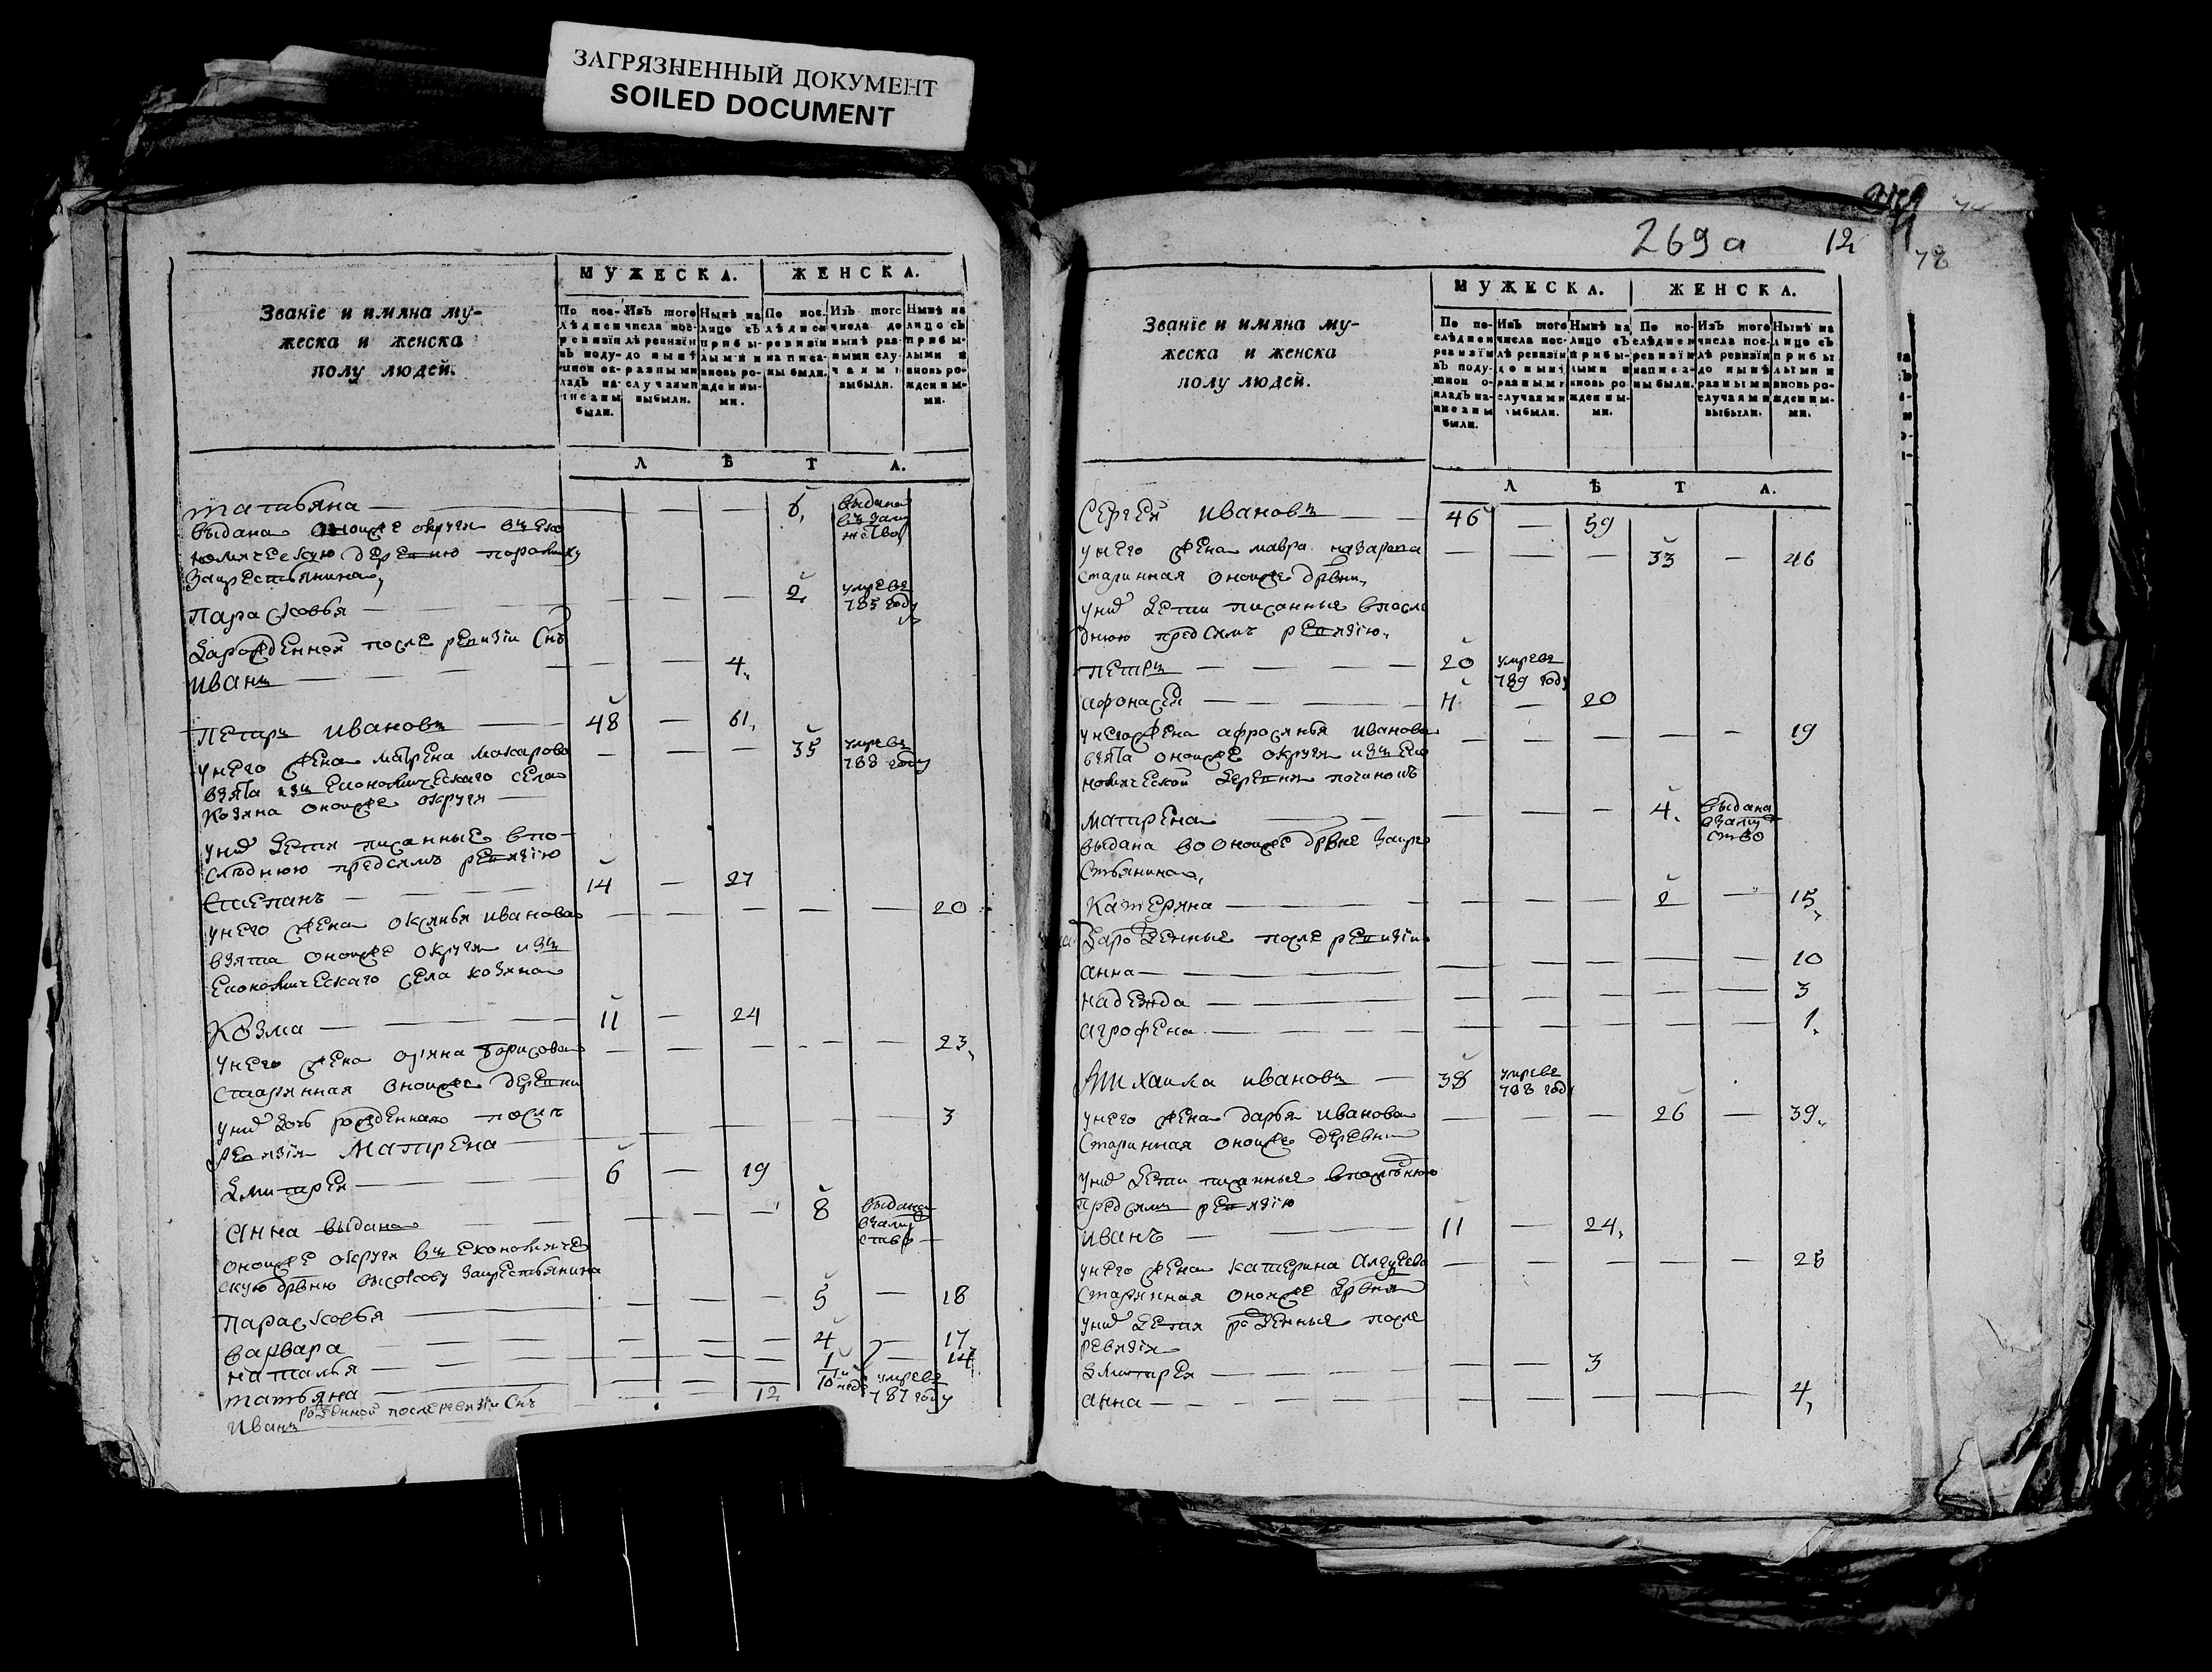 ЗАГРЯЗНЕННЫЙ ДОКУМЕНТ
SOILED DOCUMENT
Званїе и имяна му-
жеска и женска
полу людей.
МУЖЕСКА.
ЖЕНСКА.
По пос-
лѣдней
ревизїи
въ поду-
шной ок-
ладъ на-
писаны
были.
Изъ того
числа пос-
лѣ ревизїи
до нынѣ
разными
случаями
выбыли.
Нынѣ на
лицо съ
прибы-
лыми и
вновь ро-
жденны-
ми.
По пос-
лѣдней
ревизїи
написа-
ны были.
Изъ того
числа до
нынѣ раз-
ными слу-
чаями
выбыли.
Нынѣ на
лицо съ
прибы-
лыми и
вновь ро-
жденны-
ми.
Л Ѣ Т А.
татьяна — 6, выдана въ заму жство
выдана оной же округи въ эко
номическую деревню
за крестьянина,
Парасковья — 2, умре въ 785 году
зарожденной после ревизїи Снъ
иванъ — 4,
Петръ ивановъ — 48 — 61,
у него жена матрена макарова — 35 умре въ 788 году
взята изъ Економическаго села
козяна оной же округи
у них дети писанные в по-
следнюю пред симъ ревизїю
Степанъ — 14 — 27
у него жена оксинья иванова — 20
взята оной же округи изъ
Економическаго села козяна
Козма — 11 — 24
у него жена орина борисова — 23,
старинная оной же деревни
у них дочь рожденная после
ревизїи Матрена — 3
дмитрей — 6 — 19
Анна выдана — 8 выдана в заму ство
оной же округи въ економиче
скую дрвню высокову за крестьянина
Парасковья — 5 — 18
варвара — 4 — 17
наталья — 1 — 14
татьяна — 10 нед умре в 787 году
Иванъ рожденной после ревизїи Снъ — 12
269а 12
78
Званїе и имяна му-
жеска и женска
полу людей.
МУЖЕСКА.
ЖЕНСКА.
По по-
слѣдней
ревизїи
въ поду-
шной о-
кладъ на-
писаны
были.
Изъ того
числа пос-
лѣ ревизїи
до нынѣ
разными
случаями
выбыли.
Нынѣ на
лицо съ
прибы-
лыми и
вновь ро-
жденны-
ми.
По по-
слѣдней
ревизїи
написа-
ны были.
Изъ того
числа пос-
лѣ ревизїи
до нынѣ
разными
случаями
выбыли.
Нынѣ на
лицо съ
прибы-
лыми и
вновь ро-
жденны-
ми.
Л Ѣ Т А.
Сергей ивановъ — 46 — 59
у него жена мавра назарова — 33 — 46
старинная оной же дрвни,
у них дети писанные в после
днюю пред симъ ревизїю,
петръ — 20 умре въ 789 году
афонасей — — 20
у него жена афросинья иванова — 19
взята оной же округи изъ Эко
номической деревни починокъ
матрена — 4, выдана в заму ство
выдана во оной же дрвне за кре
стьянина,
Катерина — 2 — 15,
зарожденные после ревизїи
анна — 10
надежда — 3
агрофена — 1,
Михаила ивановъ — 38 умре въ 788 году
у него жена дарья иванова — 26 — 39,
Старинная оной же деревни
у них дети писанные в последнюю
пред симъ ревизїю
иванъ — 11 — 24,
у него жена катерина — 25
Старинная оной же дрвни
у них дети рожденные после
ревизїи
дмитрей — 3
анна — 4,